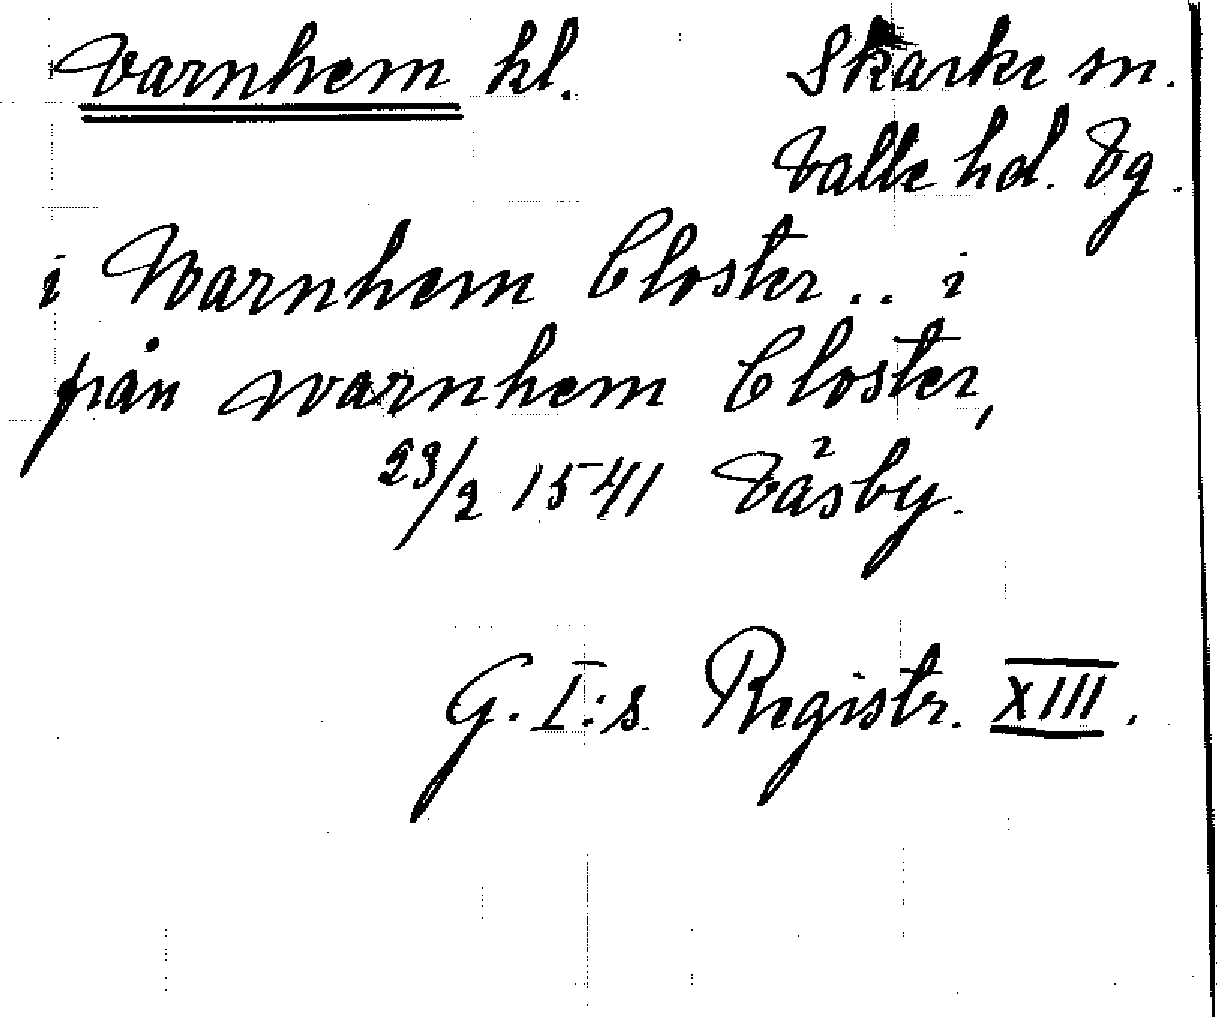 Varnhem kl. Skarke sn.
Valle hd. Vg.
i Warnhem Closter .. i
från warnhem Closter,
23/2 1541 Väsby.
G. I:s Registr. XIII.